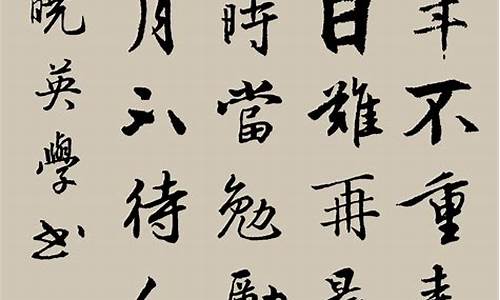 年不重來
日難再晨
時當勉勵
月不待人
晓英學书